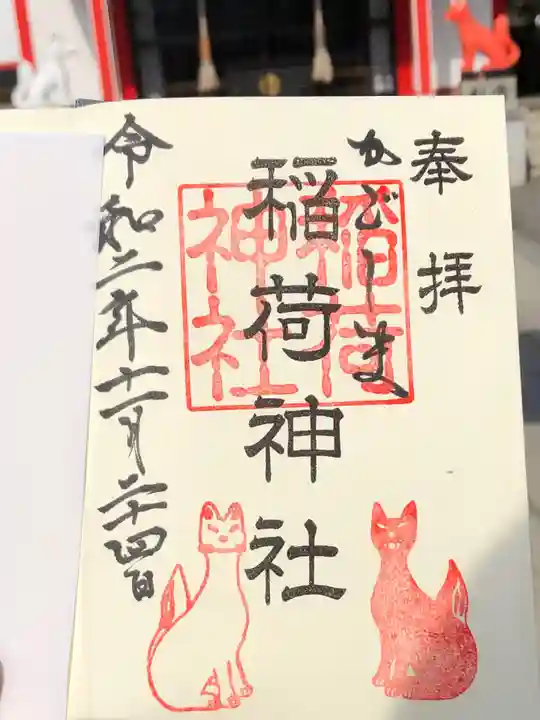 奉拝
かごしま
稲荷神社
稲荷神社
令和二年十一月二十四日